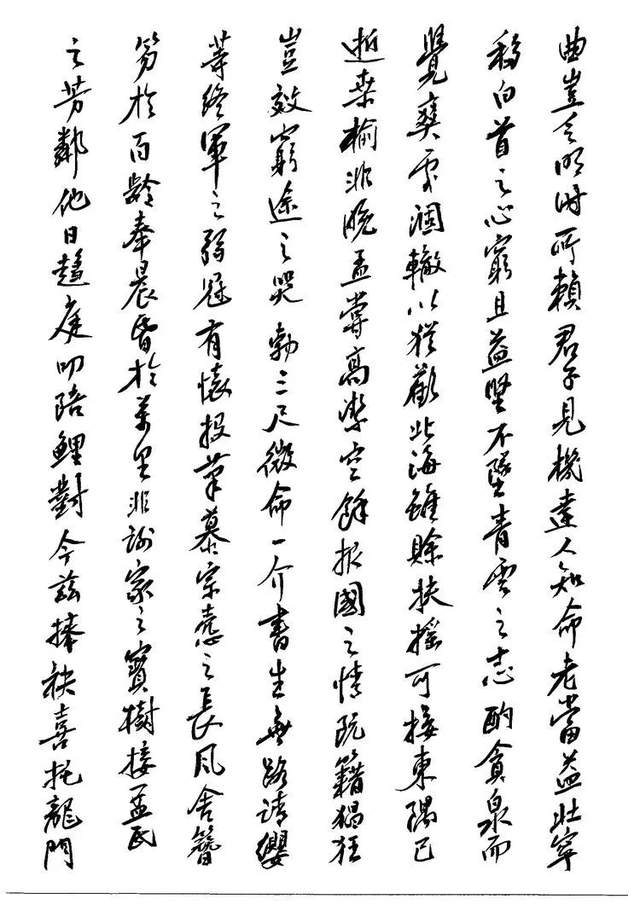 曲豈乏明時所賴君子見機達人知命老當益壯寧
移白首之心窮且益堅不墜青雲之志酌貪泉而
覺爽處涸轍以猶歡北海雖賒扶搖可接東隅已
逝桑榆非晚孟嘗高潔空餘報國之情阮籍猖狂
豈效窮途之哭勃三尺微命一介書生無路請纓
等終軍之弱冠有懷投筆慕宗愨之長風舍簪
笏於百齡奉晨昏於萬里非謝家之寶樹接孟氏
之芳鄰他日趨庭叨陪鯉對今茲捧袂喜托龍門